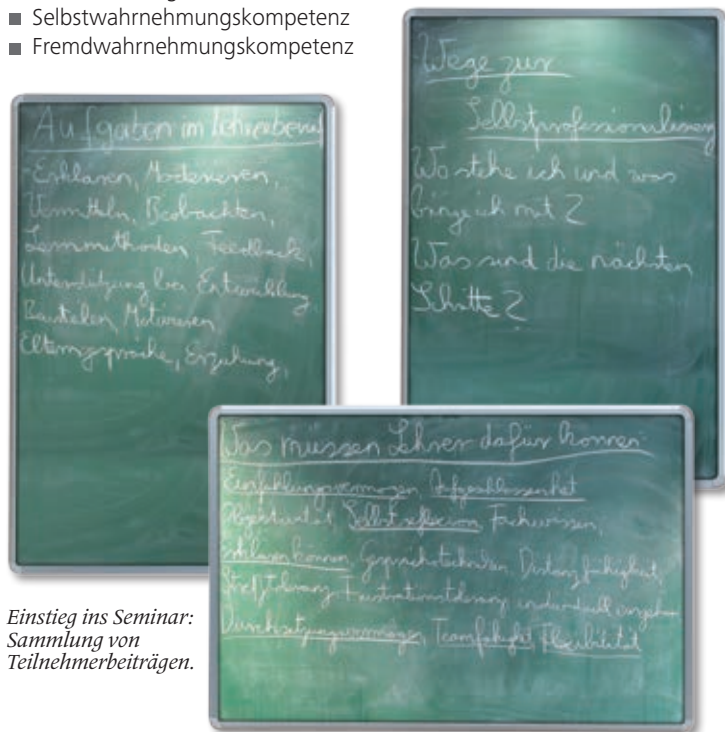 Selbstwahrnehmungskompetenz
Fremdwahrnehmungskompetenz
Aufgaben im Lehrerberuf
Erklären, Moderieren,
Vermitteln, Beobachten,
Lernmethoden, Feedback,
Unterstützung bei Entwicklung
Beurteilen, Motivieren
Elterngespräche, Erziehung,
Wege zur
Selbstprofessionalisierung
Wo stehe ich und was
bringe ich mit?
Was sind die nächsten
Schritte?
Was müssen Lehrer dafür können:
Einfühlungsvermögen, Aufgeschlossenheit
Objektivität, Selbstreflexion, Fachwissen,
erklären können, Gesprächstechniken, Distanzfähigkeit,
Streßtoleranz, Frustrationstoleranz, individuell eingehen
Durchsetzungsvermögen, Teamfähigkeit, Flexibilität
Einstieg ins Seminar:
Sammlung von
Teilnehmerbeiträgen.